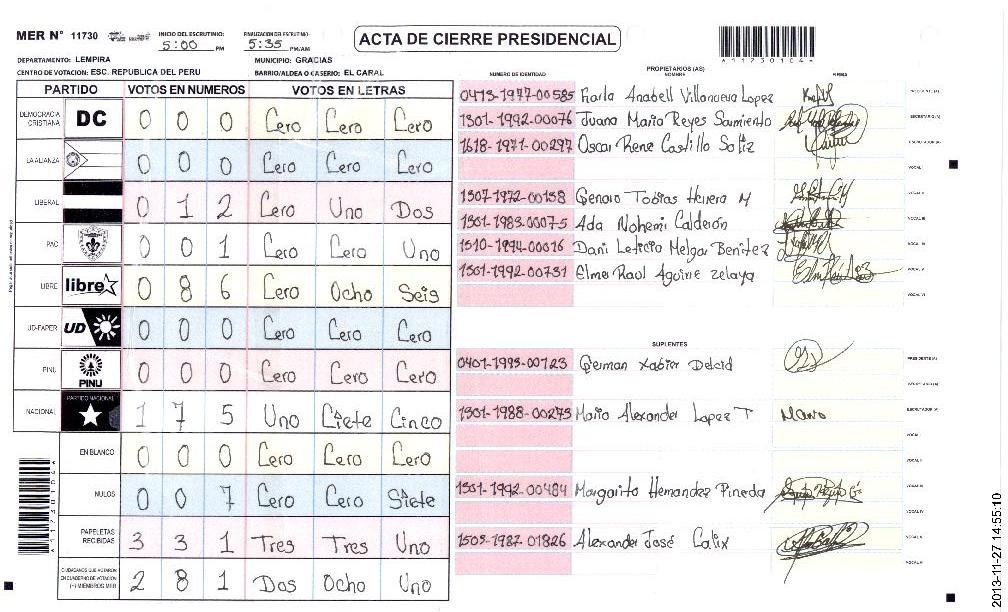 MER N° 11730 INICIO DEL ESCRUTINIO: 5:00 PM FINALIZACION DEL ESCRUTINIO: 5:35 PM/AM
ACTA DE CIERRE PRESIDENCIAL
A11730104A
DEPARTAMENTO: LEMPIRA MUNICIPIO: GRACIAS
CENTRO DE VOTACION: ESC. REPUBLICA DEL PERU BARRIO/ALDEA O CASERIO: EL CARAL
PARTIDO VOTOS EN NUMEROS VOTOS EN LETRAS
DEMOCRACIA CRISTIANA DC 0 0 0 Cero Cero Cero
LA ALIANZA 0 0 0 Cero Cero Cero
LIBERAL 0 1 2 Cero Uno Dos
PAC 0 0 1 Cero Cero Uno
LIBRE libre 0 8 6 Cero Ocho Seis
UD-FAPER UD 0 0 0 Cero Cero Cero
PINU PINU 0 0 0 Cero Cero Cero
NACIONAL PARTIDO NACIONAL 1 7 5 Uno Ciete Cinco
EN BLANCO 0 0 0 Cero Cero Cero
NULOS 0 0 7 Cero Cero Siete
PAPELETAS RECIBIDAS 3 3 1 Tres Tres Uno
CIUDADANOS QUE VOTARON EN CUADERNO DE VOTACION (+) MIEMBROS MER 2 8 1 Dos Ocho Uno
PROPIETARIOS (AS)
NUMERO DE IDENTIDAD NOMBRE FIRMA
0413-1977-00585 Karla Anabell Villanueva Lopez PRESIDENTE (A)
1301-1992-00076 Juana Maria Reyes Sarmiento SECRETARIO (A)
1618-1971-00297 Oscar Rene Castillo Soliz ESCRUTADOR (A)
VOCAL I
1307-1972-00158 Genaro Tobias Herrera M VOCAL II
1301-1983-00075 Ada Nohemi Calderón VOCAL III
1310-1994-00016 Dani Leticia Melgar Benitez VOCAL IV
1301-1992-00731 Elmer Raul Aguirre Zelaya VOCAL V
VOCAL VI
SUPLENTES
0401-1995-00123 German Xabier Delcid PRESIDENTE (A)
SECRETARIO (A)
1301-1988-00273 Mario Alexander Lopez T Mario ESCRUTADOR (A)
VOCAL I
VOCAL II
1301-1992-00484 Margarita Hernandez Pineda VOCAL III
VOCAL IV
1505-1982-01826 Alexander José Calix VOCAL V
VOCAL VI
A11730104A
2013-11-27 14:55:10